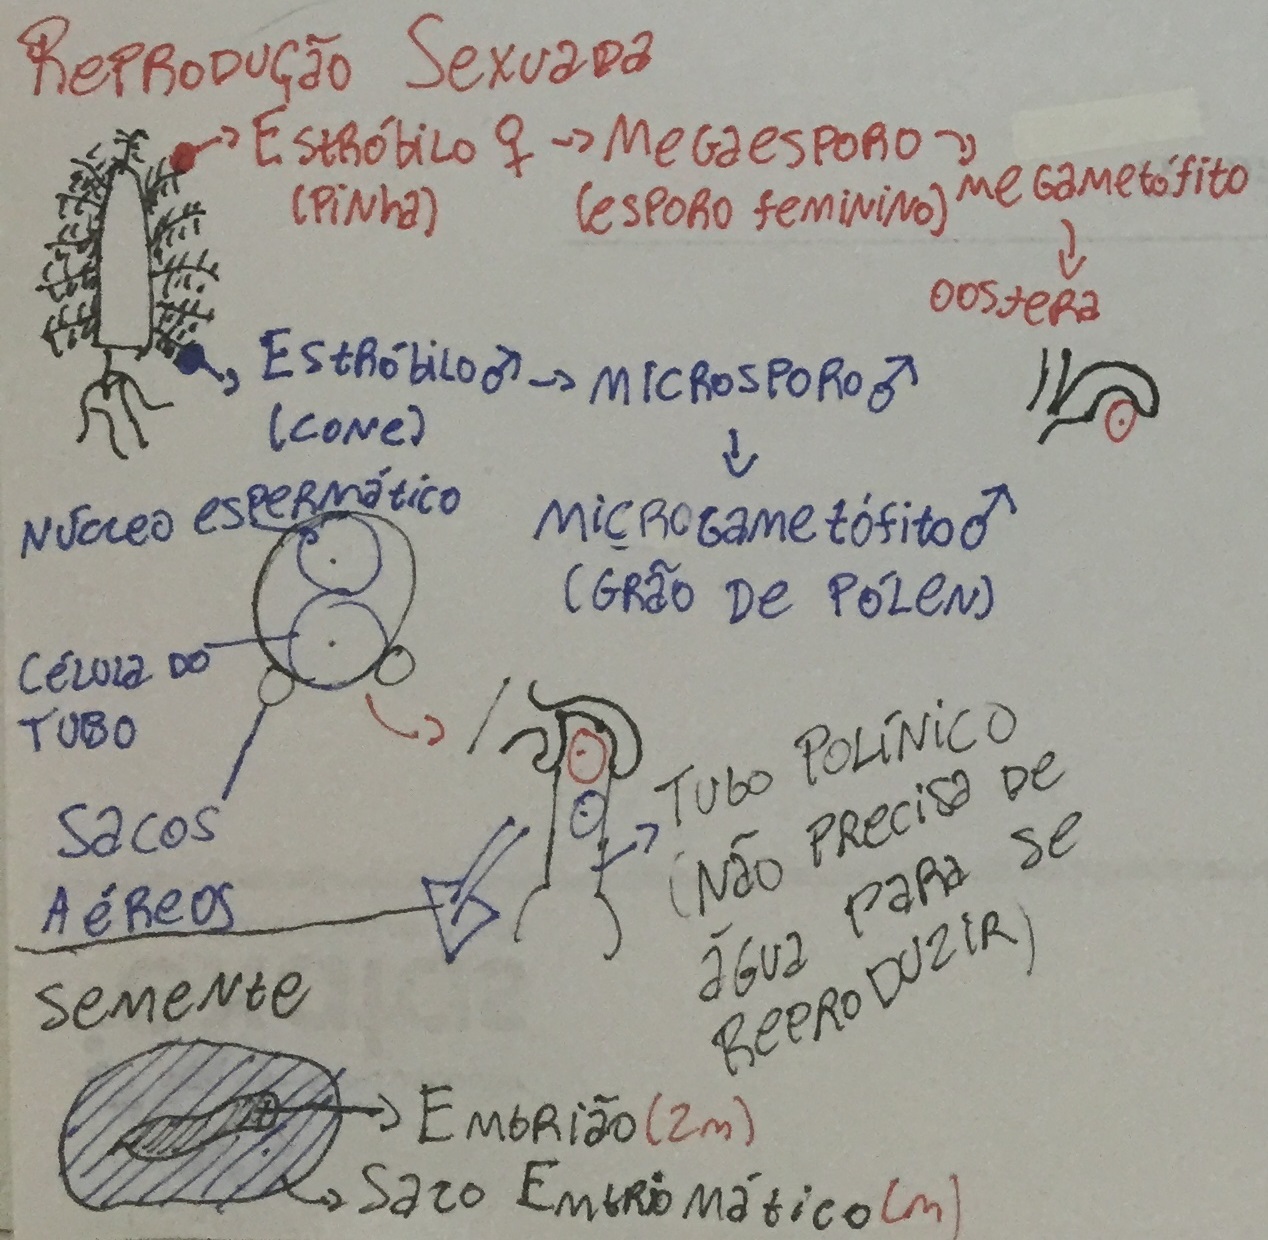 Reprodução Sexuada
Estróbilo ♀ → Megaesporo →
(Pinha) (esporo feminino) megametófito
↓
oosfera
Estróbilo ♂ → Microsporo ♂
(cone)
↓
Núcleo espermático
Microgametófito ♂
(Grão de Pólen)
Célula do
Tubo
Sacos
Aéreos
Tubo Polínico
(Não precisa de
água para se
reproduzir)
Semente
Embrião (2m)
Saco Embriomático (m)